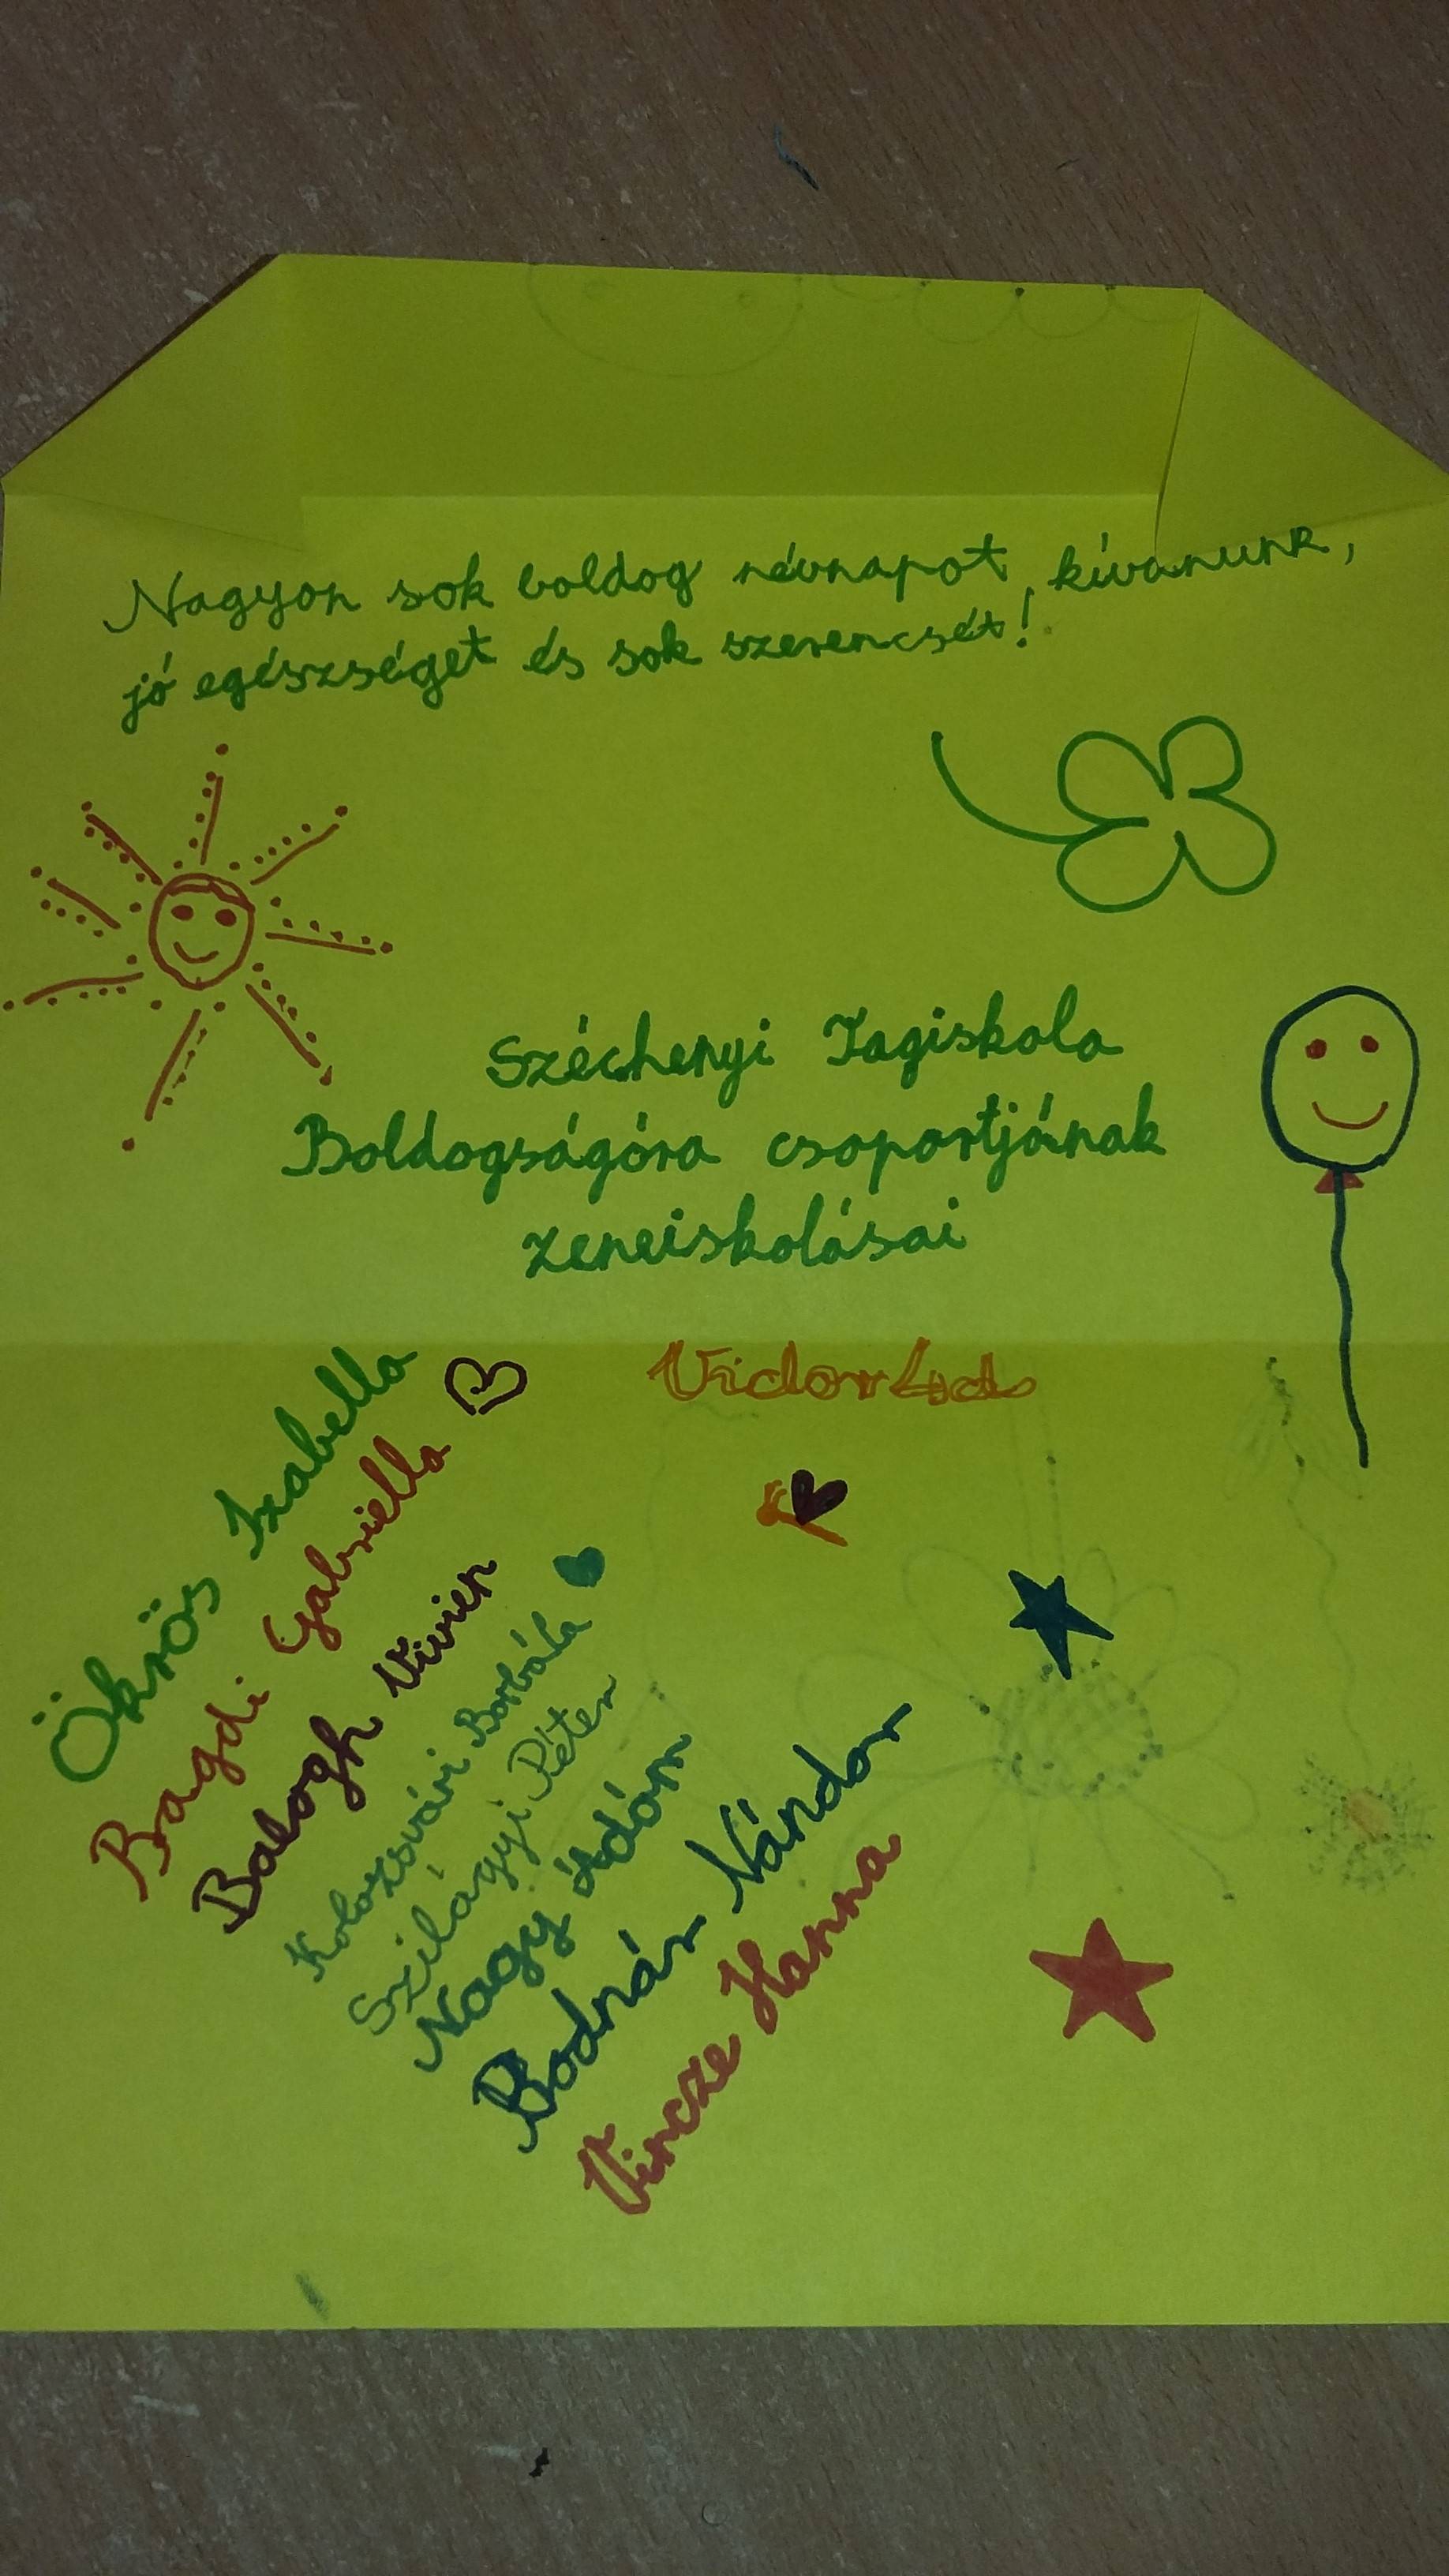 Nagyon sok boldog névnapot kívánunk,
jó egészséget és sok szerencsét!
Széchenyi Tagiskola
Boldogságóra csoportjának
zeneiskolásai
Ökrös Izabella
Bagdi Gabriella
Balogh Vivien
Kolozsvári Borbála
Szilágyi Péter
Nagy Ádám
Bodnár Nándor
Vincze Hanna